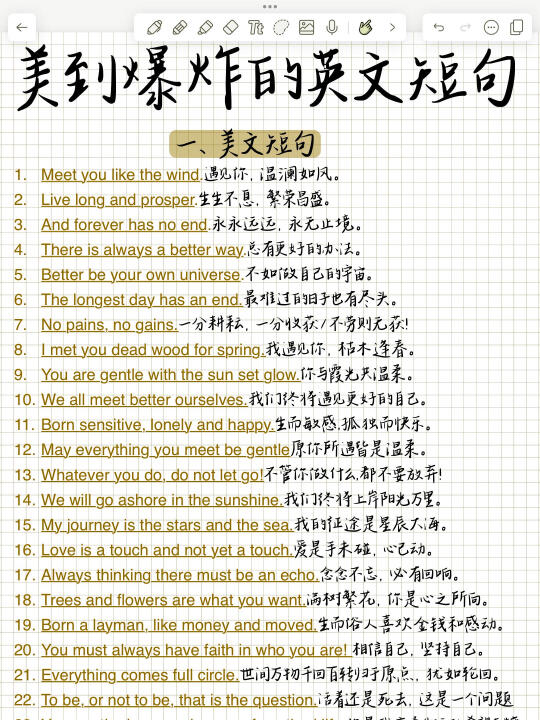 Tt
美到爆炸的英文短句
一、美文短句
1. Meet you like the wind.遇见你,温澜如风。
2. Live long and prosper.生生不息,繁荣昌盛。
3. And forever has no end.永永远远,永无止境。
4. There is always a better way.总有更好的办法。
5. Better be your own universe.不如做自己的宇宙。
6. The longest day has an end.最难过的日子也有尽头。
7. No pains, no gains.一分耕耘,一分收获/不劳则无获!
8. I met you dead wood for spring.我遇见你,枯木逢春。
9. You are gentle with the sun set glow.你与霞光共温柔。
10. We all meet better ourselves.我们终将遇见更好的自己。
11. Born sensitive, lonely and happy.生而敏感,孤独而快乐。
12. May everything you meet be gentle原你所遇皆是温柔。
13. Whatever you do, do not let go!不管你做什么,都不要放弃!
14. We will go ashore in the sunshine.我们终将上岸阳光万里。
15. My journey is the stars and the sea.我的征途是星辰大海。
16. Love is a touch and not yet a touch.爱是手未碰,心已动。
17. Always thinking there must be an echo.念念不忘,必有回响。
18. Trees and flowers are what you want.满树繁花,你是心之所向。
19. Born a layman, like money and moved.生而俗人喜欢金钱和感动。
20. You must always have faith in who you are! 相信自己,坚持自己。
21. Everything comes full circle.世间万物千回百转归于原点,犹如轮回。
22. To be, or not to be, that is the question.活着还是死去,这是一个问题